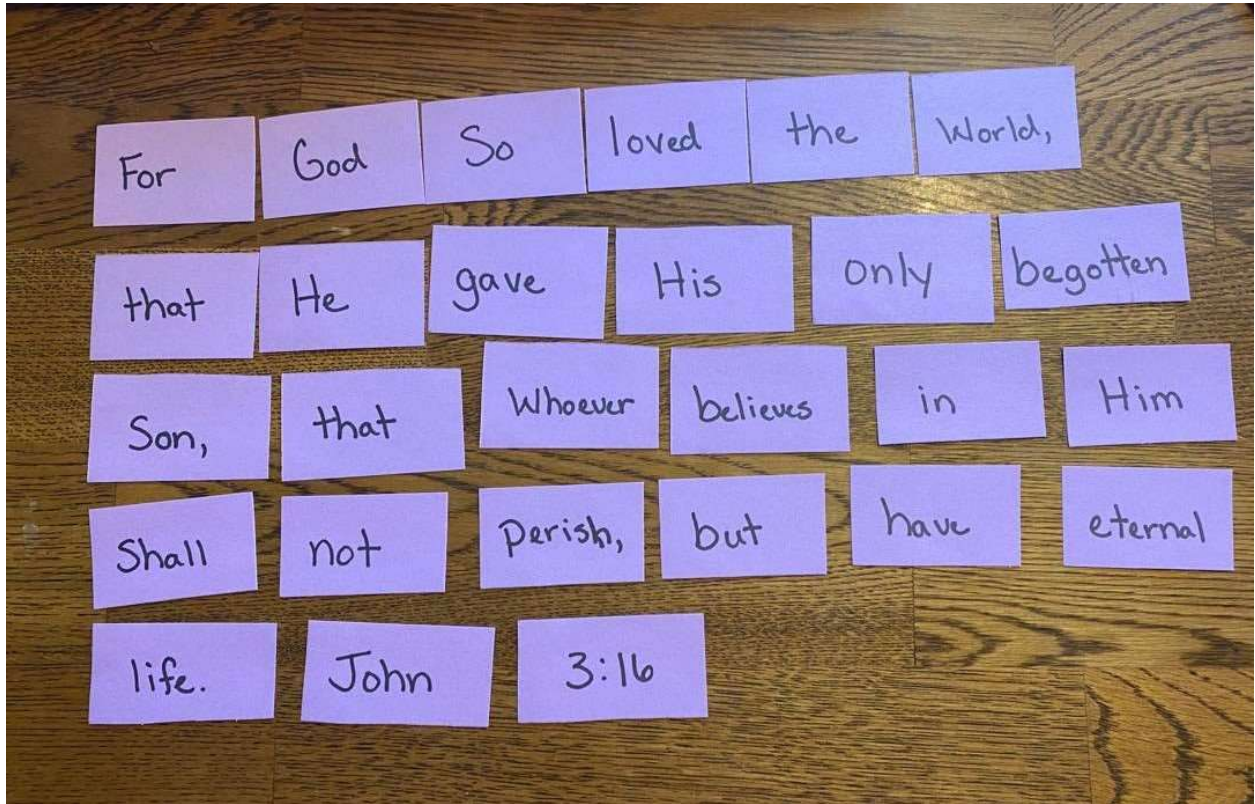 For God So loved the World,
that He gave His only begotten
Son, that Whoever believes in Him
Shall not Perish, but have eternal
life. John 3:16